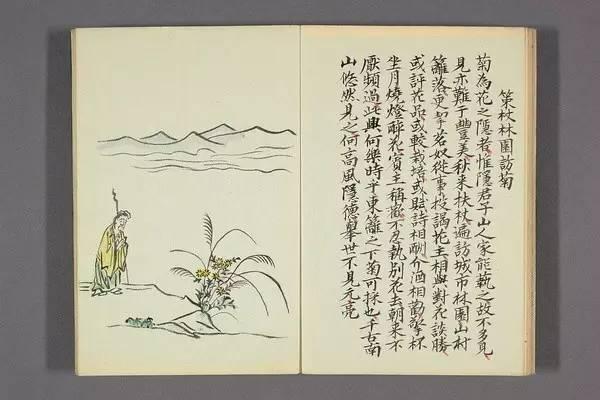 策杖林園訪菊
菊為花之隱者惟隱君子山人家能藝之故不多見
見亦難于豐美秋來扶杖遍訪城市林園山村
籬落更挈茗奴從事投謁花主相與對花談勝
或評花品或較栽培或賦詩相酬介酒相勸擎杯
坐月燒燈醉花賓主稱歡不忍執別花去朝來不
厭頻過此興何樂時乎東籬之下菊可採也千古南
山悠然見之何高風隱德舉世不見元亮